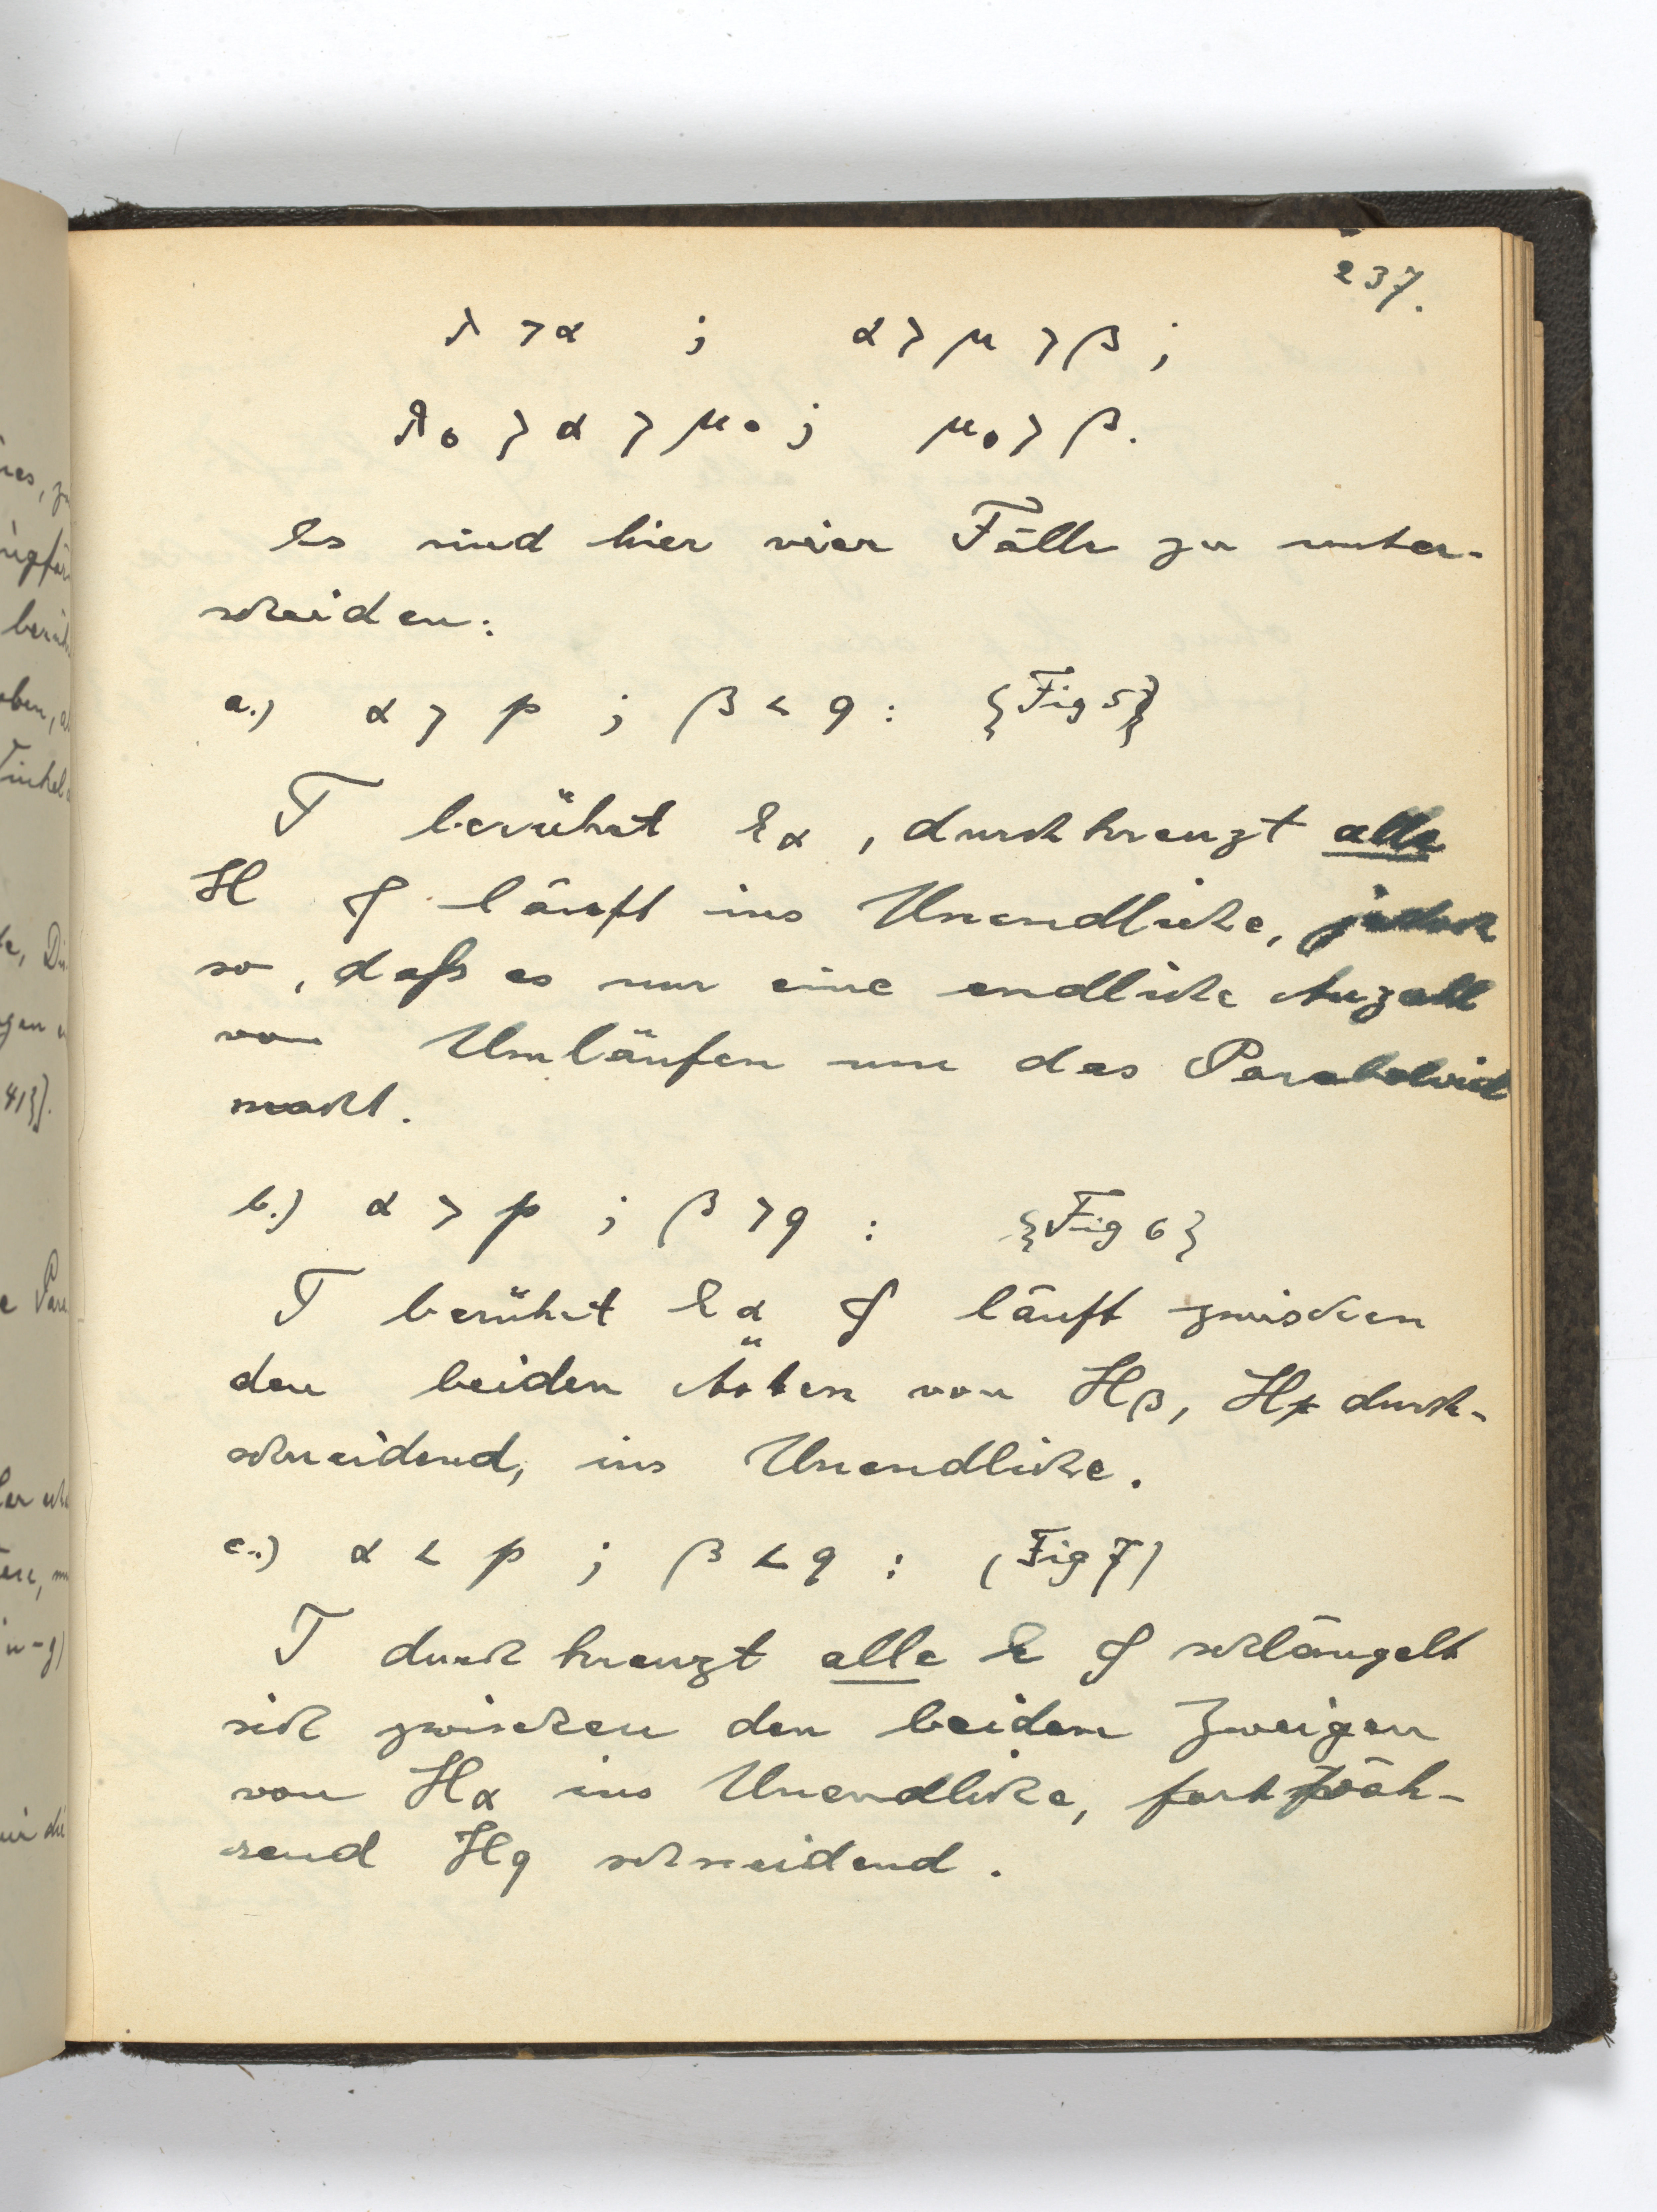 237.
λ > α ; α > μ > β ;
λ₀ > α > μ₀ ; μ₀ > β.
Es sind hier vier Fälle zu unter-
scheiden:
a.) α > p ; β < q : {Fig 5}
T berührt Eα , durchkreuzt alle
H & läuft ins Unendliche, jedoch
so, daß es nur eine endliche Anzahl
von Umläufen um das Paraboloid
macht.
b.) α > p ; β > q : {Fig 6}
T berührt Eα & läuft zwischen
den beiden Ästen von Hβ, Hp durch-
schneidend, ins Unendliche.
c.) α < p ; β < q : (Fig 7)
T durchkreuzt alle E & schlängelt
sich zwischen den beiden Zweigen
von Hα ins Unendliche, fortwäh-
rend Hq schneidend.